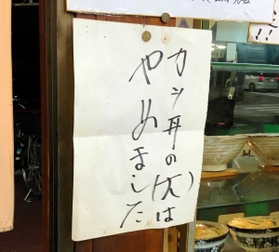 カツ丼の(大)は
やめました